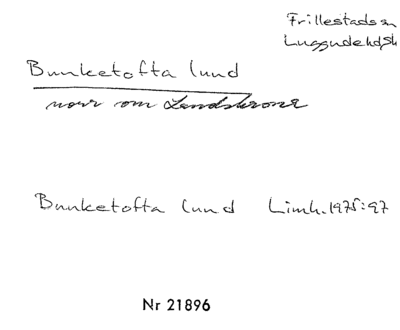 Frillestads sn
Luggude hd, Sk
Bunketofta lund
norr om Landskrona
Bunketofta lund Limh. 1975:97
Nr 21896